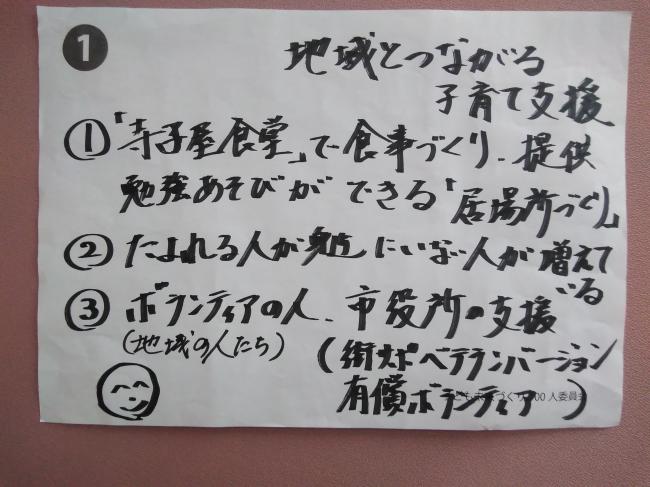 1
地域とつながる
子育て支援
①「寺子屋食堂」で食事づくり、提供
勉強あそびができる「居場所づくり」
② たよれる人が身近にいない人が増えて
いる
③ ボランティアの人、市役所の支援
(地域の人たち)
(街かどベテランバージョン
有償ボランティア)
づくり 100人委員会